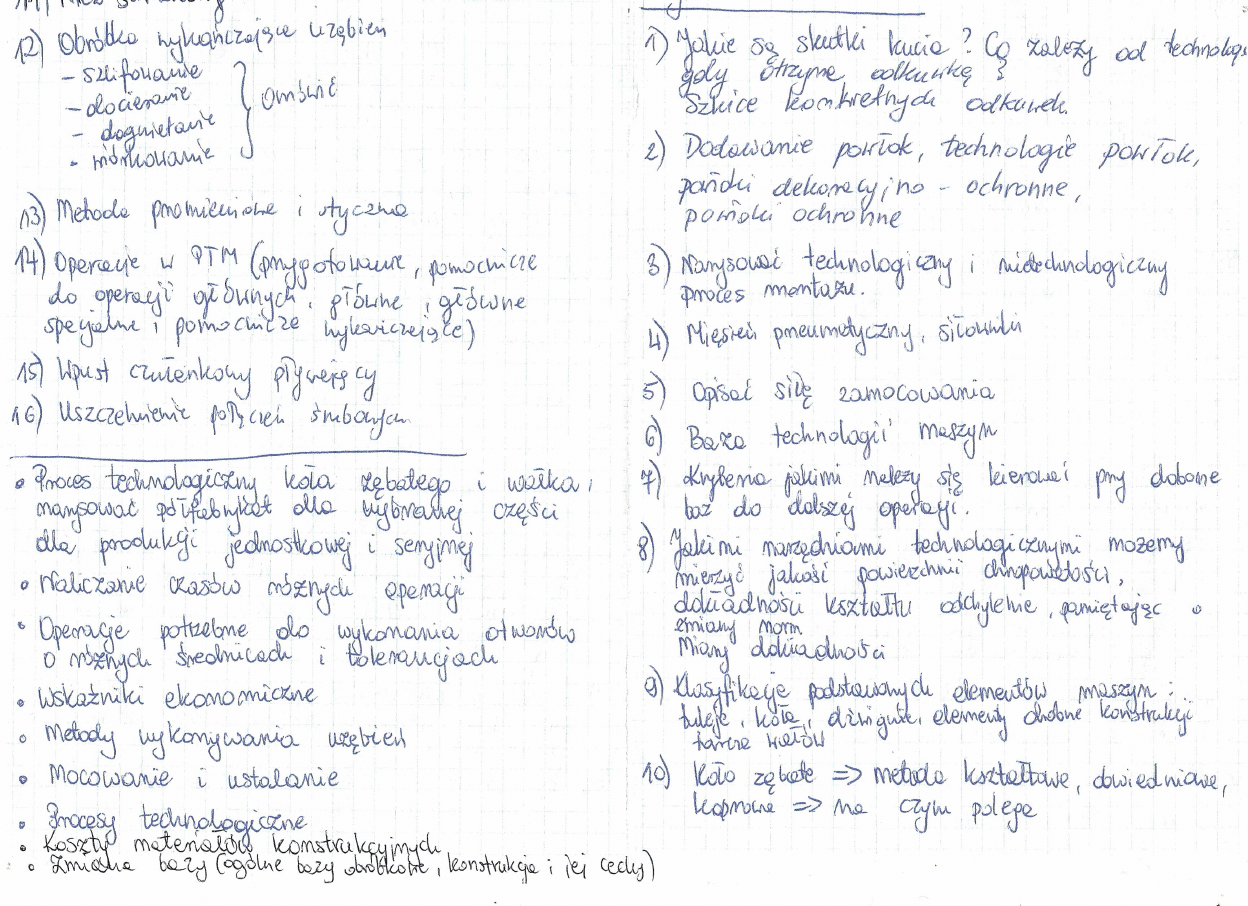 12) Obróbka wykańczająca uzębień
- szlifowanie
- docieranie
- dogniatanie
- wiórkowanie
} omówić
13) Metoda promieniowa i styczna
14) Operacje w PTM (przygotowawcze, pomocnicze
do operacji głównych, główne, główne
specjalne, pomocnicze wykańczające)
15) Wpust czółenkowy pływający
16) Uszczelnienie połączeń śrubowych
• Proces technologiczny koła zębatego i wałka,
narysować półfabrykat dla wybranej części
dla produkcji jednostkowej i seryjnej
• Naliczanie czasów różnych operacji
• Operacje potrzebne do wykonania otworów
o różnych średnicach i tolerancjach
• Wskaźniki ekonomiczne
• Metody wykonywania uzębień
• Mocowanie i ustalanie
• Procesy technologiczne
• Koszty materiałów konstrukcyjnych
• Zmiana bazy (ogólne bazy obróbkowe, konstrukcja i jej cechy)
1) Jakie są skutki kucia? Co zależy od technologa
gdy otrzyma odkuwkę?
Szkice konkretnych odkuwek.
2) Dodawanie powłok, technologie powłok,
dekoracyjno - ochronne,
powłoki ochronne
3) Narysować technologiczny i nietechnologiczny
proces montażu.
4) Mięsień pneumatyczny, siłowniki
5) Opisać siłę zamocowania
6) Baza technologii maszyn
7) Kryteria jakimi należy się kierować przy doborze
baz do dalszej operacji.
8) Jakimi narzędziami technologicznymi możemy
mierzyć jakość powierzchni chropowatości,
dokładności kształtu odchylenie, pamiętając o
zmiany norm
Miary dokładności
9) Klasyfikacje podstawowych elementów maszyn:
tuleje, koła, dźwignie, elementy drobne konstrukcji
tarcze wałów
10) Koło zębate => metoda kształtowa, obwiedniowa,
kopiowa => na czym polega